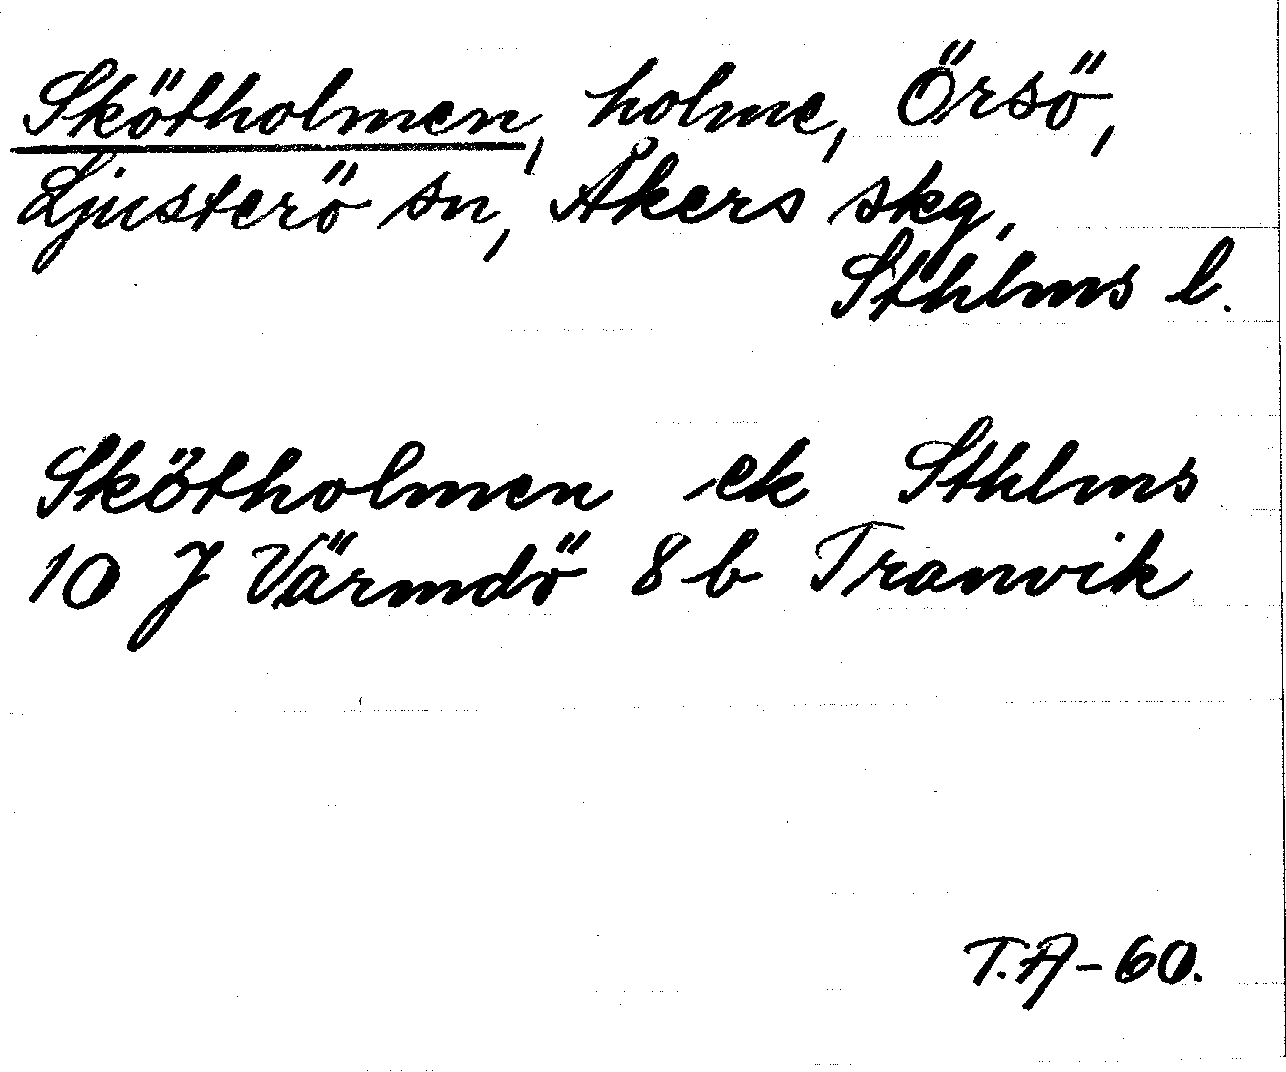 Skötholmen, holme, Örsö,
Ljusterö sn, Åkers skg,
Sthlms l.
Skötholmen ek Sthlms
10 J Värmdö 8 b Tranvik
T.A-60.